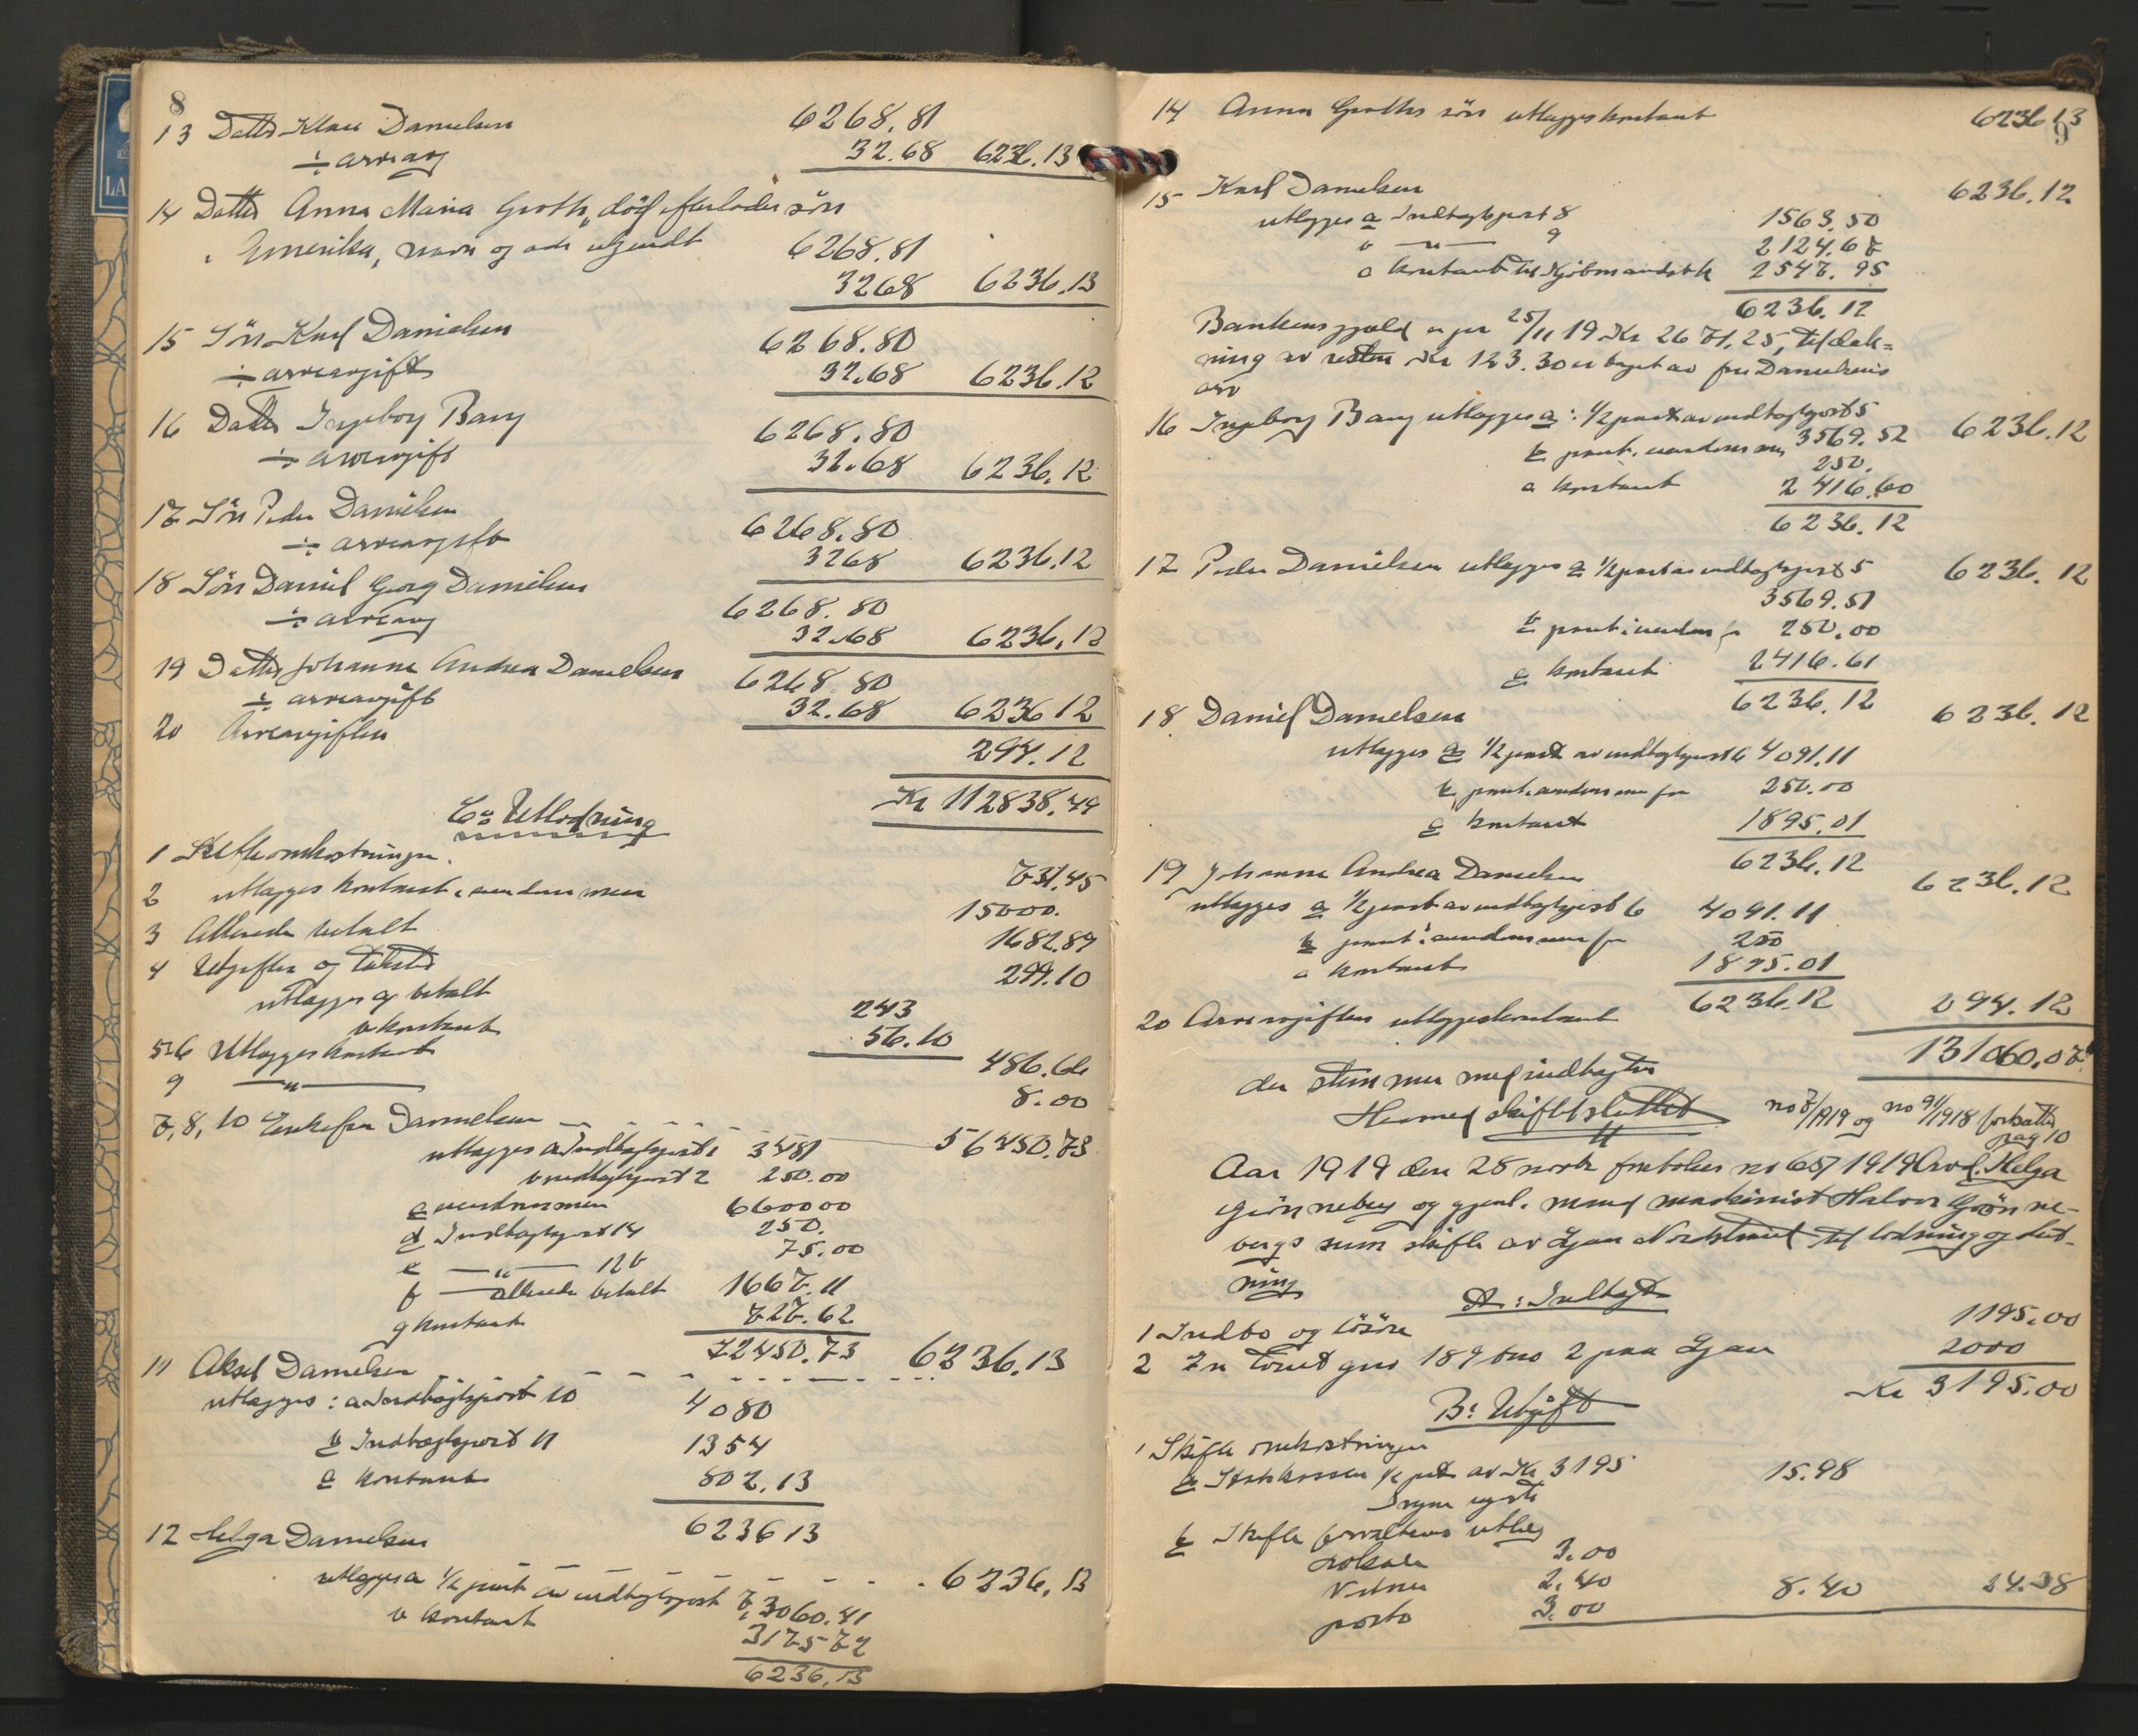 8
13 Datter Klara Danielsen 6268.81
÷ arveavg 32.68 6236.13
14 Datter Anna Maria Groth, död efterlader sön
i Amerika, navn og adr ukjendt 6268.81
3268 6236.13
15 Sön Karl Danielsen 6268.80
÷ arveavgift 32.68 6236.12
16 Datter Ingeborg Bang 6268.80
÷ arveavgift 32.68 6236.12
17 Sön Peder Danielsen 6268.80
÷ arveavgift 3268 6236.12
18 Sön Daniel Georg Danielsen 6268.80
÷ arveavg 32.68 6236.12
19 Datter Johanne Andrea Danielsen 6268.80
÷ arveavgift 32.68 6236.12
20 Arveavgiften 294.12
Kr 112838.49
C: Utlodning
1 Skifteomkostninger
utlægges kontant 731.45
2 15000.
3 Allerede betalt 1682.89
4 Utgifter og
utlægges a betalt 243 299.10
b kontant 56.10
5-6 Utlægges kontant 486.66
9 — " — 8.00
7, 8, 10 Enkefru Danielsen 56450.73
utlægges a Indtægtspost 1 3481
b indtægtspost 2 250.00
c 660000
d Indtægtspost 14 250.
e — " — 12 b 75.00
f — allerede betalt 1667.11
g kontant 727.62
72450.73
11 Aksel Danielsen 6236.13
utlægges: a Indtægtspost 10 4080
b Indtægtspost 11 1354
c kontant 802.13
6236 13
12 Helga Danielsen 6236.13
utlægges a 1/2 part av indtægtspost 7, 3060.41
b kontant 3175 72
6236.13
9
14 Anna Groths sön utlægges kontant 6236 13
15 Karl Danielsen 6236.12
utlægges a Indtægtspost 8 1563.50
b — " — 9 2124.67
c kontant til Kjöbmandsbk 2547.95
6236.12
Bankens gjæld er pr 25/11 19 Kr 2671.25, til dæk=
ning av resten Kr 123.30 er taget av fru Danielsens
arv
16 Ingeborg Bang utlægges a: 1/2 part av indtægtspost 5 6236.12
3569.52
b pant. 250.
c kontant 2416.60
6236.12
17 Peder Danielsen utlægges a 1/2 part av indtægtspost 5 6236.12
3569.51
b pant. 250.00
c kontant 2416.61
6236.12
18 Daniel Danielsen 6236.12
utlægges a 1/2 part av indtægtspost 6 4091.11
b pant. 250.00
c kontant 1895.01
6236.12
19 Johanne Andrea Danielsen 6236.12
utlægges a 1/2 part av indtægtspost 6 4091.11
b pant. 250
c kontant 1895.01
6236.12
20 Arveavgiften utlægges kontant 294.12
131060.07
der stemmer med indtægten
Hermed skiftet sluttet
no 7/1919 og no 91/1918 fortsættes
pag 10
Aar 1919 den 28 novbr foretokes no 65/1919 Avd. Helga
Grönneberg og gjenl. mand maskinist Halvor Grönne-
bergs sum skifte av Ljan Nordstrand til lodning og slut-
ning
A: Indtægt
1 Indbo og lösöre 1195.00
2 En tomt gno 189 bno 2 paa Ljan 2000
Kr 3195.00
B: Utgift
1 Skifte omkostninger
a Statskassen 1/2 pct av Kr 3195 15.98
b Skifte forvalterens utlæg
Lokale 3.00
Vidner 2.40
porto 3.00 8.40 24.38